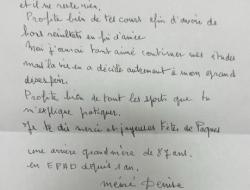 et il ne reste rien.
Profite bien de tes cours afin d'avoir de
bons résultats en fin d'année
Moi j'aurai tant aimé continuer mes études
mais la vie en a décidé autrement à mon grand
desespoir.
Profite bien de tous les sports que tu
m'explique pratiquer.
Je te dis merci et joyeuses Fêtes de Pâques
une arrière grand mère de 87 ans.
en EPHAD depuis 1 an.
Denise